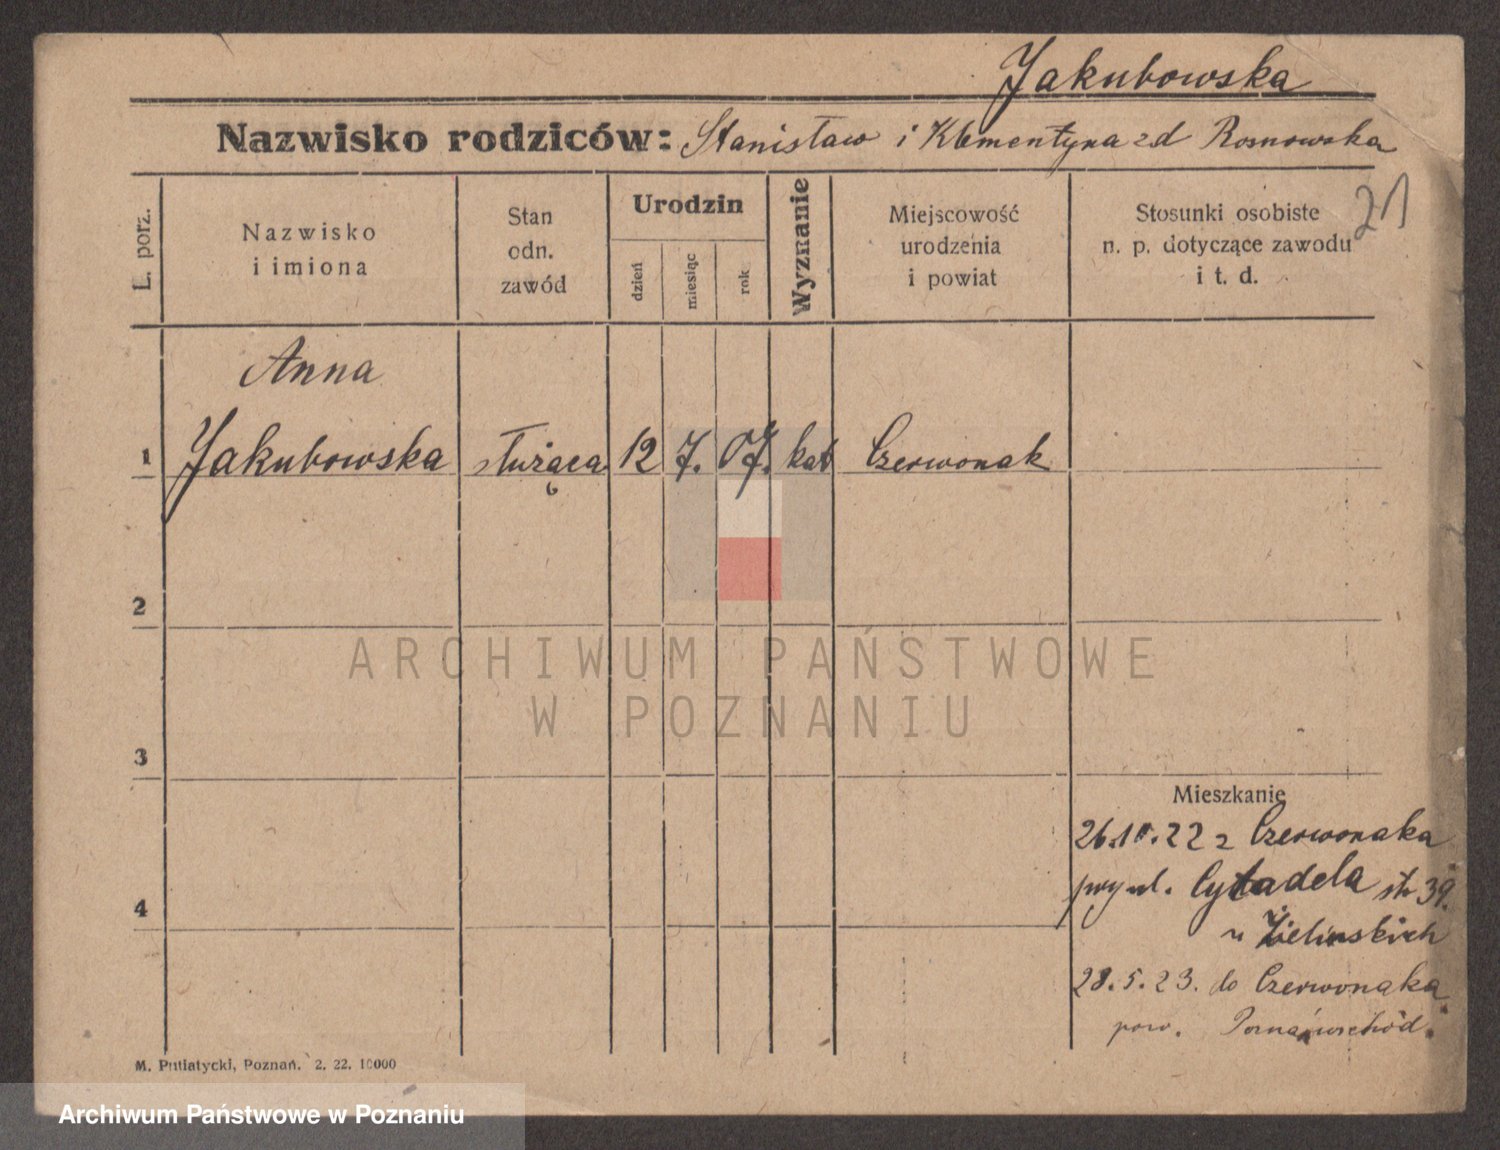 Jakubowska
Nazwisko rodziców: Stanisław i Klementyna zd Rosnowska
L. porz.
Nazwisko
i imiona
Stan
odn.
zawód
Urodzin
dzień
miesiąc
rok
Wyznanie
Miejscowość
urodzenia
i powiat
Stosunki osobiste
n. p. dotyczące zawodu
i t. d.
21
Anna
1 Jakubowska służąca 12 7. 07. kat Czerwonak
2
ARCHIWUM PAŃSTWOWE
W POZNANIU
3
Mieszkanie
26.10.22 z Czerwonaka
4
Cytadela str 39.
u Zielinskich
28.5.23. do Czerwonaka
pow. Poznań wschód.
M. Putiatycki, Poznań. 2. 22. 10000
Archiwum Państwowe w Poznaniu